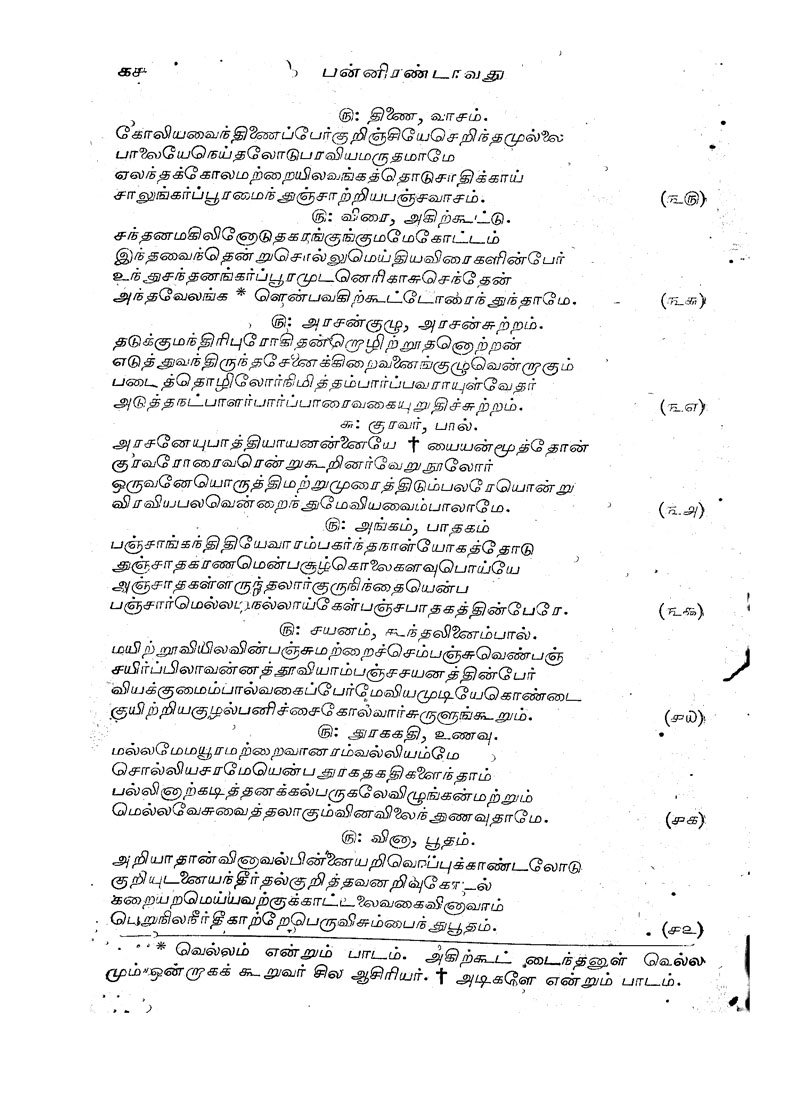 கச பன்னிரண்டாவது
ரு: திணை, வாசம்.
கோலியவைந்திணைப்பேர்குறிஞ்சியேசெறிந்தமுல்லை
பாலையேநெய்தலோடுபரவியமருதமாமே
ஏலந்தக்கோலமற்றையிலவங்கத்தொடுசாதிக்காய்
சாலுங்கர்ப்பூரமைந்துஞ்சாற்றியபஞ்சவாசம். (௩௫)
ரு: விரை, அகிற்கூட்டு.
சந்தனமகிலினோடுதகரங்குங்குமமேகோட்டம்
இந்தவைந்தென்றுசொல்லுமெய்தியவிரைகளின்பேர்
உந்துசந்தனங்கர்ப்பூரமுடனெரிகாசுசெந்தேன்
அந்தவேலங்க * ளென்பவகிற்கூட்டோரைந்துந்தாமே. (௩௬)
ரு: அரசன்குழு, அரசன்சுற்றம்.
தடுக்குமந்திரிபுரோகிதன்றொழிற்றூதனொற்றன்
எடுத்துவந்திருந்தசேனைக்கிறைவனைங்குழுவென்றாகும்
படைத்தொழிலோர்நிமித்தம்பார்ப்பவராயுள்வேதர்
அடுத்தநட்பாளர்பார்ப்பாரைவகையுறுதிச்சுற்றம். (௩௭)
௬: குரவர், பால்.
அரசனேயுபாத்தியாயனன்னையே † யையன்மூத்தோன்
குரவரோரைவரென்றுகூறினர்வேறுநூலோர்
ஒருவனேயொருத்திமற்றுமுரைத்திடும்பலரேயொன்று
விரவியபலவென்றைந்துமேவியவைம்பாலாமே. (௩௮)
ரு: அங்கம், பாதகம்
பஞ்சாங்கந்திதியேவாரம்பகர்ந்தநாள்யோகத்தோடு
துஞ்சாதகரணமென்பசூழ்கொலைகளவுபொய்யே
அஞ்சாதகள்ளருந்தலார்குருநிந்தையென்ப
பஞ்சார்மெல்லடிநல்லாய்கேள்பஞ்சபாதகத்தின்பேரே. (௩௯)
ரு: சயனம், கூந்தலினைம்பால்.
மயிற்றூவியிலவின்பஞ்சுமற்றைச்செம்பஞ்சுவெண்பஞ்
சயிர்ப்பிலாவன்னத்தூவியாம்பஞ்சசயனத்தின்பேர்
வியக்குமைம்பால்வகைப்பேர்மேவியமுடியேகொண்டை
குயிற்றியகுழல்பனிச்சைகோல்வார்சுருளுங்கூறும். (௪௰)
ரு: துரககதி, உணவு.
மல்லமேமயூரமற்றைவானரம்வல்லியம்மே
சொல்லியசரமேயென்பதுரகதகதிகளைந்தாம்
பல்லினாற்கடித்தனக்கல்பருகலேவிழுங்கன்மற்றும்
மெல்லவேசுவைத்தலாகும்வினவிலைந்துணவுதாமே. (௪௧)
ரு: வினா, பூதம்.
அறியாதான்வினாவல்பின்னையறிவொப்புக்காண்டலோடு
குறியுடனையந்தீர்தல்குறித்தவனறிவுகோடல்
கறையறமெய்யவற்குக்காட்டலைவகைவினாவாம்
பெறுநிலநீர்தீகாற்றேபெருவிசும்பைந்துபூதம். (௪௨)
* வெல்லம் என்றும் பாடம். அகிற்கூட்டைந்தனுள் வெல்ல
மும் ஒன்றாகக் கூறுவர் சில ஆசிரியர். † அடிகளே என்றும் பாடம்.